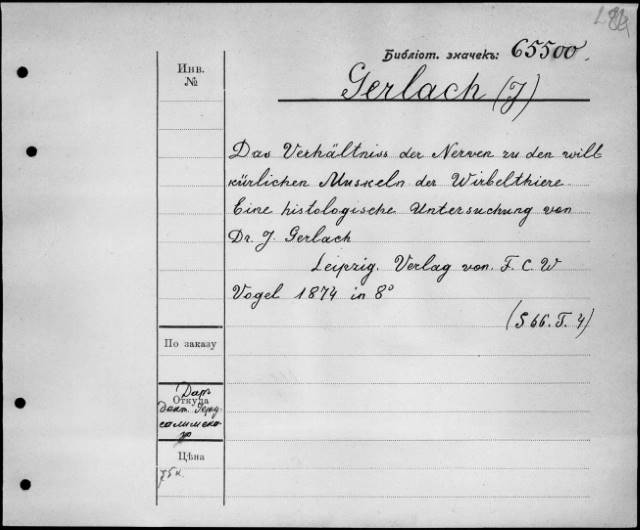 Библіот. значекъ: 65500.
Gerlach (J)
Инв.
№
Das Verhältniss der Nerven zu den will
kürlichen Muskeln der Wirbelthiere
Eine histologische Untersuchung von
Dr. J. Gerlach
Leipzig. Verlag von. F. C. W
Vogel 1874 in 8°
(S 66. T. 4)
По заказу
Откуда
Даръ
Цѣна
75 к.